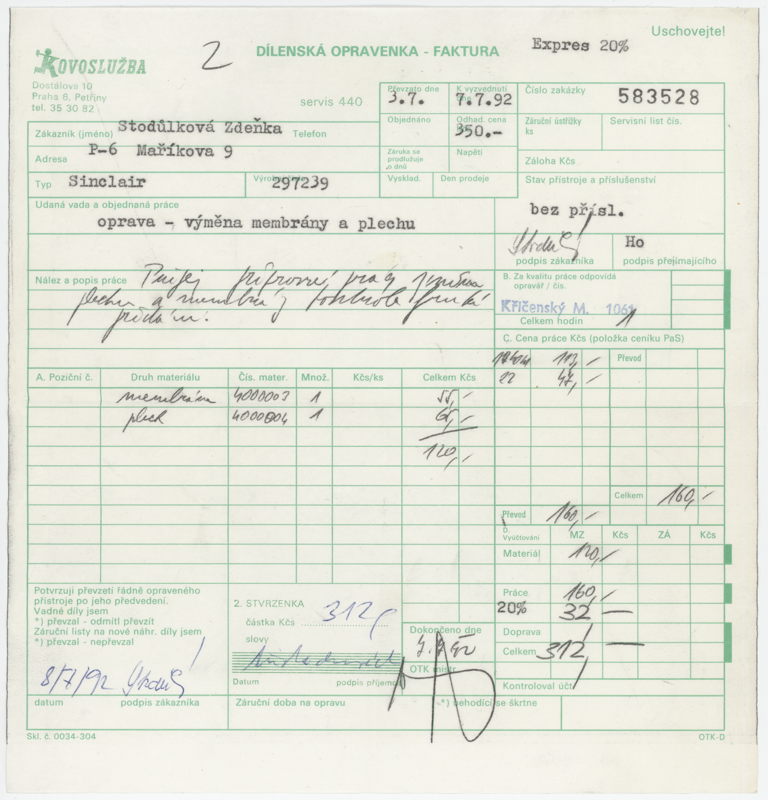 Uschovejte!
2
DÍLENSKÁ OPRAVENKA - FAKTURA
Expres 20%
KOVOSLUŽBA
Dostálova 10
Praha 6, Petřiny
tel. 35 30 82
servis 440
Převzato dne
3.7.
K vyzvednutí
7.7.92
Číslo zakázky
583528
Objednáno
Odhad. cena
350.-
Záruční ústřižky
ks
Servisní list čís.
Zákazník (jméno) Stodůlková Zdeňka Telefon
Adresa P-6 Maříkova 9
Záruka se
prodlužuje
o dnů
Napětí
Záloha Kčs
Typ Sinclair
297239
Vysklad.
Den prodeje
Stav přístroje a příslušenství
bez přísl.
Udaná vada a objednaná práce
oprava - výměna membrány a plechu
podpis zákazníka
Ho
podpis přejímajícího
Nález a popis práce
B. Za kvalitu práce odpovídá
opravář / čís.
Křičenský M. 1061
Celkem hodin 1
C. Cena práce Kčs (položka ceníku PaS)
113,-
Převod
22 47,-
A. Poziční č.
Druh materiálu
Čís. mater.
Množ.
Kčs/ks
Celkem Kčs
membrána 4000003 1 55,-
plech 4000804 1 65,-
120,-
Celkem 160,-
Převod 160,-
D.
Vyúčtování
MZ
Kčs
ZÁ
Kčs
Materiál 120,-
Práce 160,-
20% 32 —
Doprava
Celkem 312 —
Kontroloval účt.
Potvrzuji převzetí řádně opraveného
přístroje po jeho předvedení.
Vadné díly jsem
*) převzal - odmítl převzít
Záruční listy na nové náhr. díly jsem
*) převzal - nepřevzal
8/7/92
datum
podpis zákazníka
2. STVRZENKA
částka Kčs 312,-
slovy
Datum
podpis příjemce
Dokončeno dne
OTK mistr
Záruční doba na opravu
*) nehodící se škrtne
Skl. č. 0034-304
OTK-D